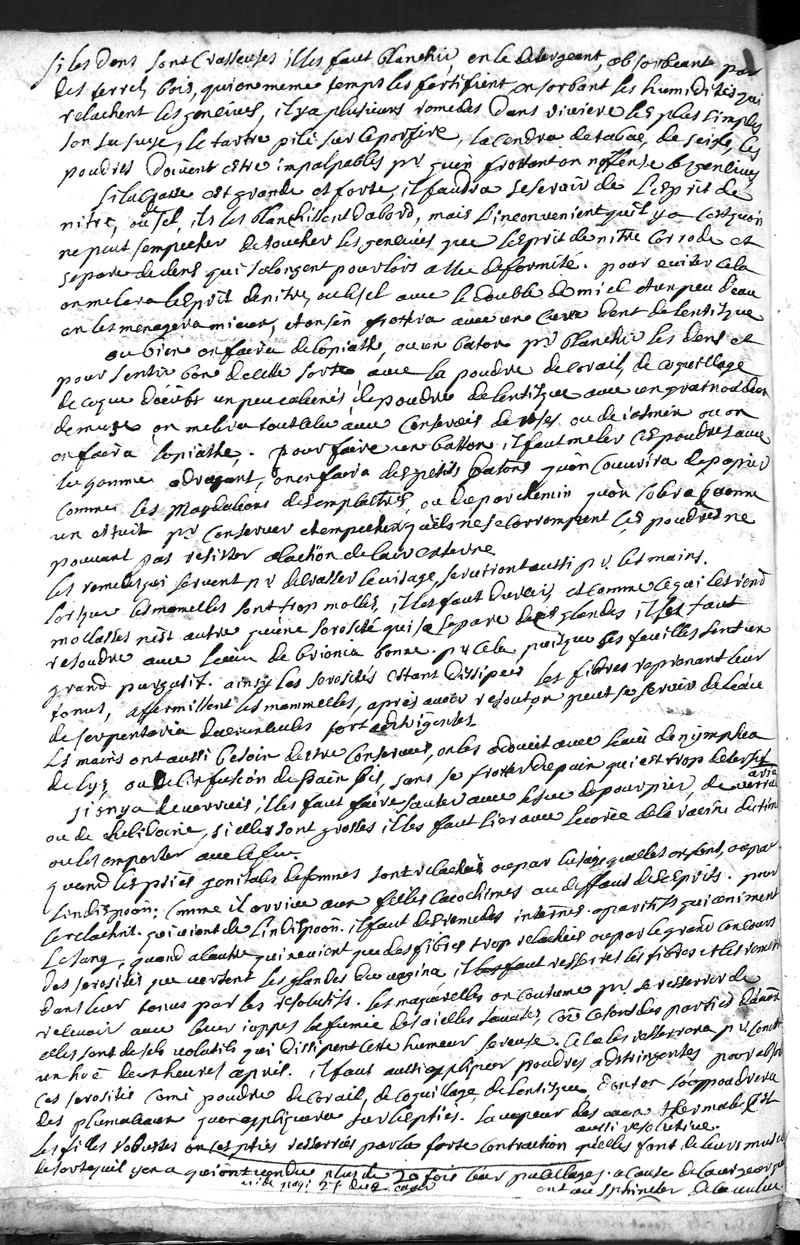 si les dens sont crasseuses il les faut blanchir, en le detergeant, absorbeant par
des terres, bois, qui en meme temps les fortifient en sorbant les humidités qui
relachent les gencives, il y a plusieurs remedes dans riviere les plus simples
son la suye, le tartre pilé sur le porfire, la cendre de tabac, de seiche, les
poudres doivent estre impalpables pr quen frottant on noffense les gencives
Si la crasse est grande et forte, il faudra se servir de l'esprit de
nitre, ou sel, ils les blanchissent dabord, mais l'inconvenient qu'il y a cest quon
ne peut sempecher de toucher les gencives que lesprit de nitre corrode et
separe de dens qui salongent pour lors a
 deformité. pour eviter cela
on melera lesprit de nitre, ou le sel avec le double de miel et un peu d'eau
on les menagera mieux, et on sen frottera avec une cure dent de lentisque
ou bien on faira de lopiathe, ou un baton pr blanchir les dens et
pour sentir bon de cette sorte avec la poudre de corail, de coquillage
de coque doeufs un peu calcinés de poudre de lentisque avec un grain ou deux
de musc on melera tout cela avec conserves de roses, ou de iasmin ou on
on faira lopiathe. pour faire un battons, il faut meler ces poudres avec
la gomme adragant, on en faira des petits batons quon couvrira de papier
comme les magdalions demplatres, ou de parchemin quon
 comme
un estuit pr conserver et empecher quels ne se corrompent les poudres ne
pouvant pas resister alaction de lair externe
les remedes qui servent pr decrasser le visage, serviront aussi pr les mains.
lorsque les mamelles sont trop molles, il les faut durcir, et comme ce qui les rend
mollasses nest autre quune serosité qui se separe des glandes il les faut
resoudre avec leau de brionia bonne. pr cela puisque ses feuilles sont un
grand purgatif. ainsy les serosités estans dissipées les fibres reprenant leur
tonus, affermissent les mammelles, apres avoir resout on peut se servir de leau
de serpentaria
 fort astringentes
Les mains ont aussi besoin destre conservées, on les adoucit avec leau de nymphea
de lys, ou de linfusion de pain bis, sans se frotter de pain qui est trop detersif
Si on y a de verrues, il les faut faire sauter avec le suc de pourpier, de verrucaria
ou de chelidoine, si elles sont grosses il les faut lier avec
ou les emporter avec le feu.
quand les pties genitales de femmes sont relachées ou par lusage quelles en font, ou par
lindispoôn. comme il arrive aux filles cacochimes ou deffaut desprits. pour
le relachmt. qui vient de l'indispoôn. il faut des remedes internes aperitifs qui animent
le sang, quand a lautre qui ne vient que des fibres trop relachées ou par le grand concours
des serosités que versent les glandes du vagina, il faut resserrer les fibres et les remettre
dans leur tonus par les resolutifs. les maquerelles on coutume pr se resserrer de
recevoir avec leur iuppes la fumée
 savates, come ce sont des parties danim
elles sont de sels volatils qui dissipent cette humeur sereuse. cela les resserrera pr
un ho é deux heures apres. il faut aussi appliquer poudres adstringentes pour absor
ces serosités come poudre de corail, de coquillage de lentisque, dont on saupoudrera
des plumaceaux quon appliquera sur les pties. la vapeur des eaux thermales est
aussi resolutive.
les filles robustes on ces pties resserrées par la forte contraction quelles font de leurs muscles
de sorte quil y en a qui ont vendu plus de 20 fois leur pucellages. a cause de la vigeur que
ont au sphincter de la vulve
vide pag: 27 du 2 cayer